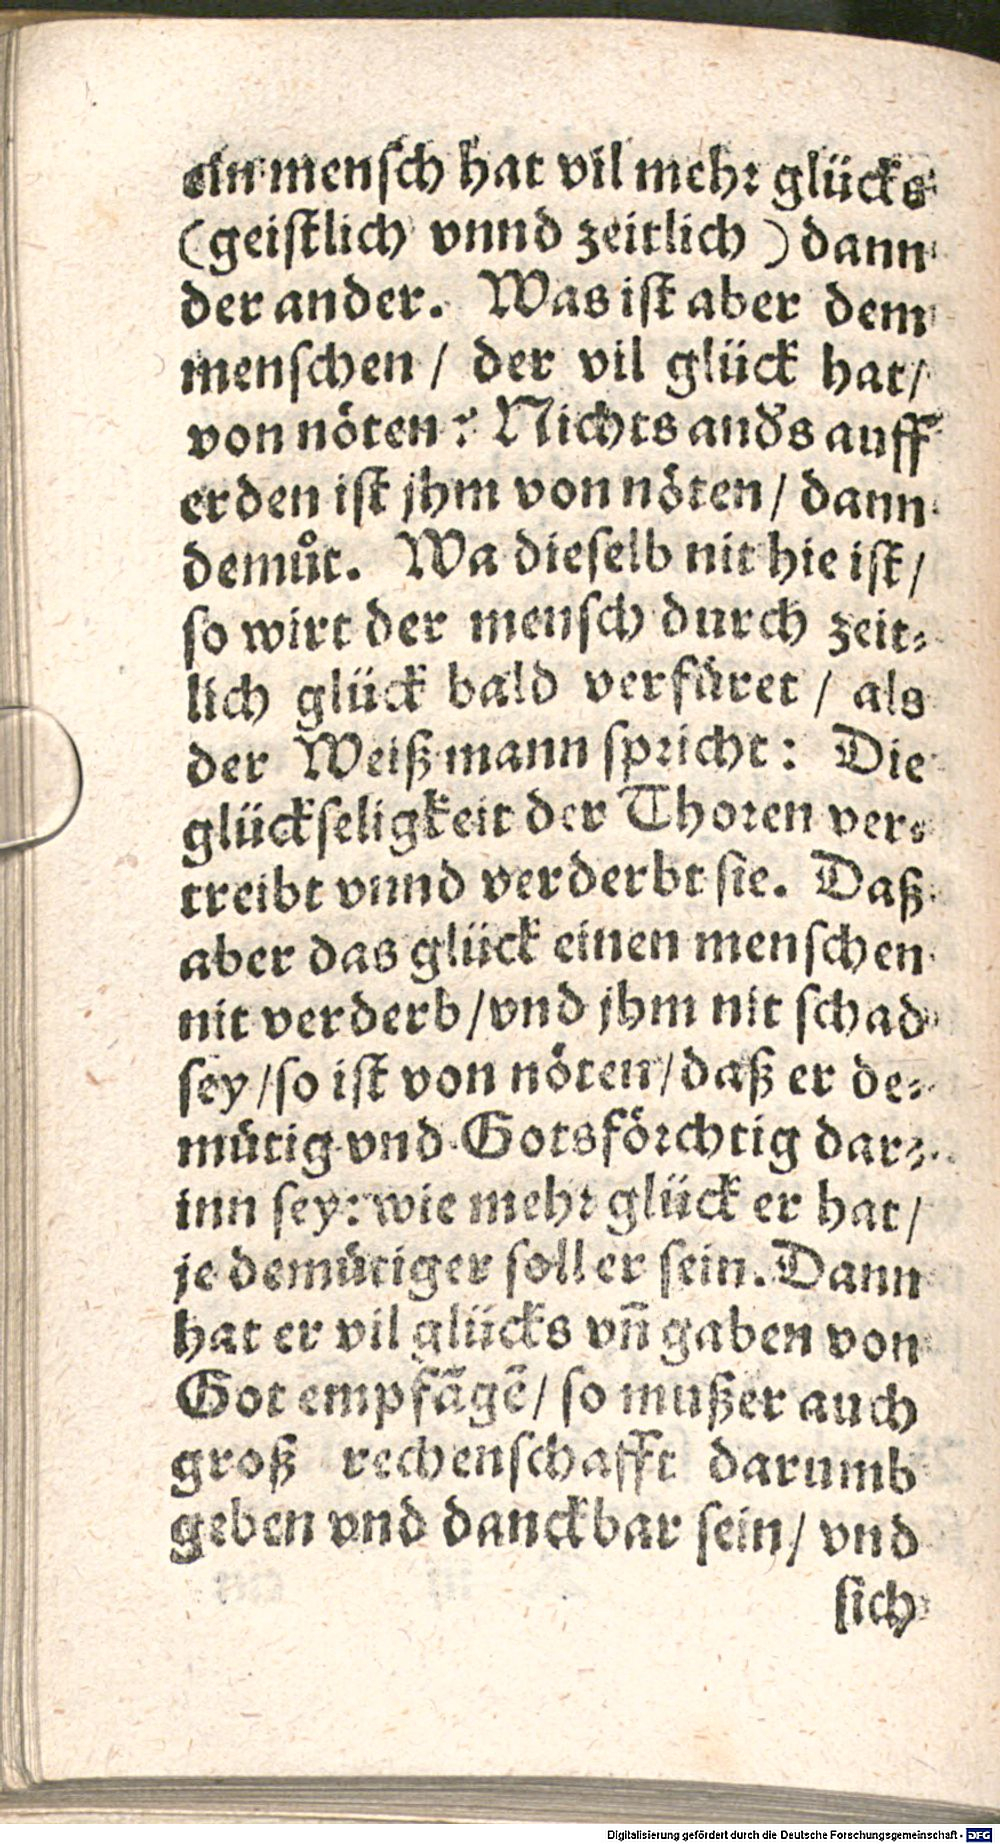 ein mensch hat vil mehr glücks
(geistlich vnnd zeitlich) dann
der ander. Was ist aber dem
menschen / der vil glück hat/
von nöten? Nichts anďs auff
erden ist jhm von nöten / dann
demůt. Wa dieselb nit hie ist /
so wirt der mensch durch zeit-
lich glück bald verfüret / als
der Weißmann spricht: Die
glückseligkeit der Thoren ver-
treibt vnnd verderbt sie. Daß
aber das glück einen menschen
nit verderb / vnd jhm nit schad
sey / so ist von nöten / daß er de-
mütig vnd Gotsförchtig dar-
inn sey: wie mehr glück er hat /
je demütiger soll er sein. Dann
hat er vil glücks vñ gaben von
Got empfãgẽ / so muß er auch
groß rechenschafft darumb
geben vnd danckbar sein / vnd
sich
Digitalisierung gefördert durch die Deutsche Forschungsgemeinschaft - DFG